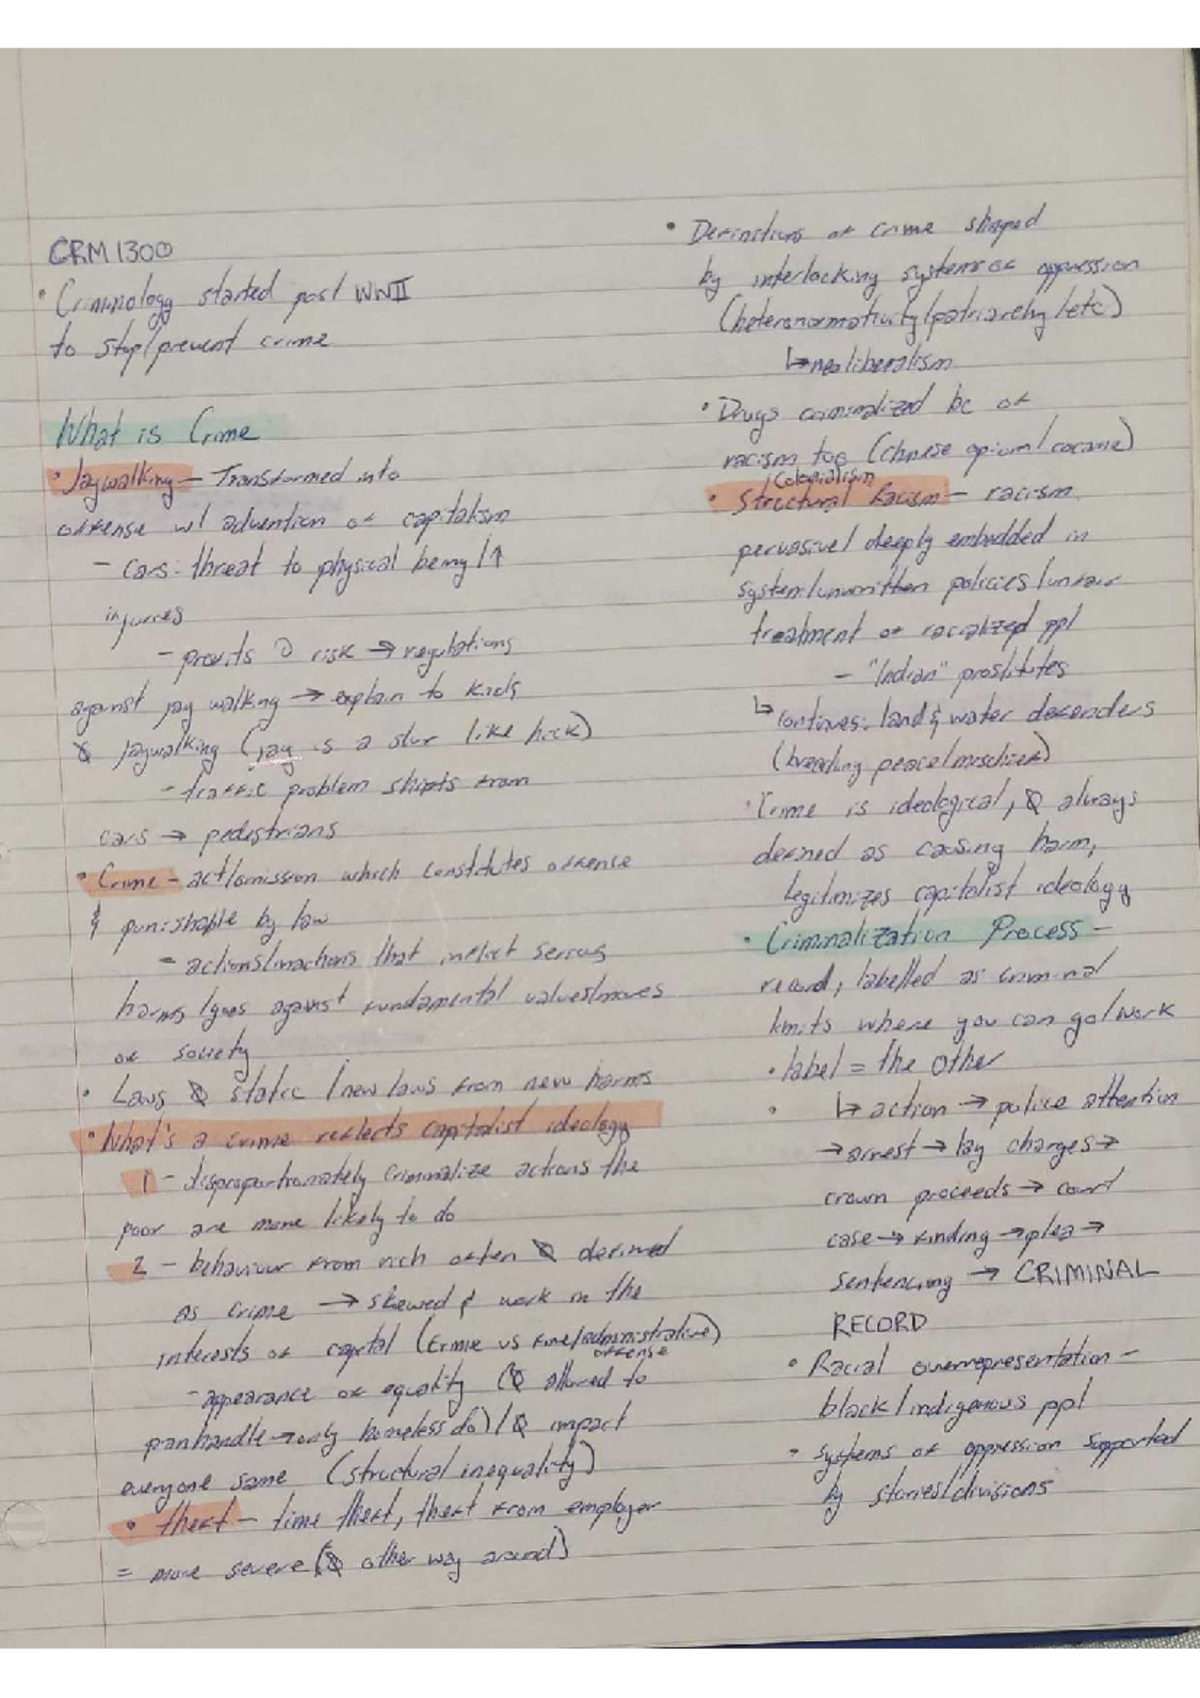 CRM 1300
• Criminology started post WWII
to stop/prevent crime
What is Crime
• Jaywalking - Transformed into
offense w/ advention of capitalism
- cars: threat to physical being/↑
injuries
- profits risk → regulations
against jay walking → explain to kids
jaywalking (jay is a slur like hick)
- traffic problem shifts from
cars → pedestrians
• Crime - act/omission which constitutes offense
& punishable by law
- actions/inactions that inflict serious
harms/goes against fundamental values/mores
of society
• Laws static / new laws from new harms
• What's a crime reflects capitalist ideology
1 - disproportionately criminalize actions the
poor are more likely to do
2 - behaviour from rich often defined
as crime → skewed & work in the
interests of capital (crime vs fine/administrative)
offense
- appearance of equality ( allowed to
panhandle → only homeless do) / impact
everyone same (structural inequality)
• theft - time theft, theft from employer
= more severe ( other way around)
• Definitions of crime shaped
by interlocking systems of oppression
(heteronormativity/patriarchy/etc)
↳ neoliberalism
• Drugs criminalized bc of
racism too (chinese opium/cocaine)
Colonialism
• Structural Racism - racism
pervasive/deeply embedded in
system/unwritten policies/unfair
treatment of racialized ppl
- "Indian" prostitutes
↳ continues: land & water defenders
(breaching peace/mischief)
• Crime is ideological, always
defined as causing harm,
legitimizes capitalist ideology
• Criminalization Process -
record, labelled as criminal
limits where you can go/work
• label = the other
• ↳ action → police attention
→ arrest → lay charges →
crown proceeds → court
case → finding → plea →
sentencing → CRIMINAL
RECORD
• Racial overrepresentation -
black/indigenous ppl
• systems of oppression supported
by stories/divisions